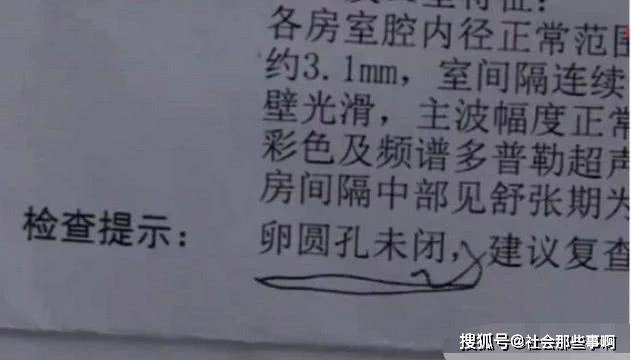 各房室腔内径正常范围
约3.1mm，室间隔连续
壁光滑，主波幅度正常
彩色及频谱多普勒超声
房间隔中部见舒张期为
检查提示： 卵圆孔未闭，建议复查
搜狐号@社会那些事啊